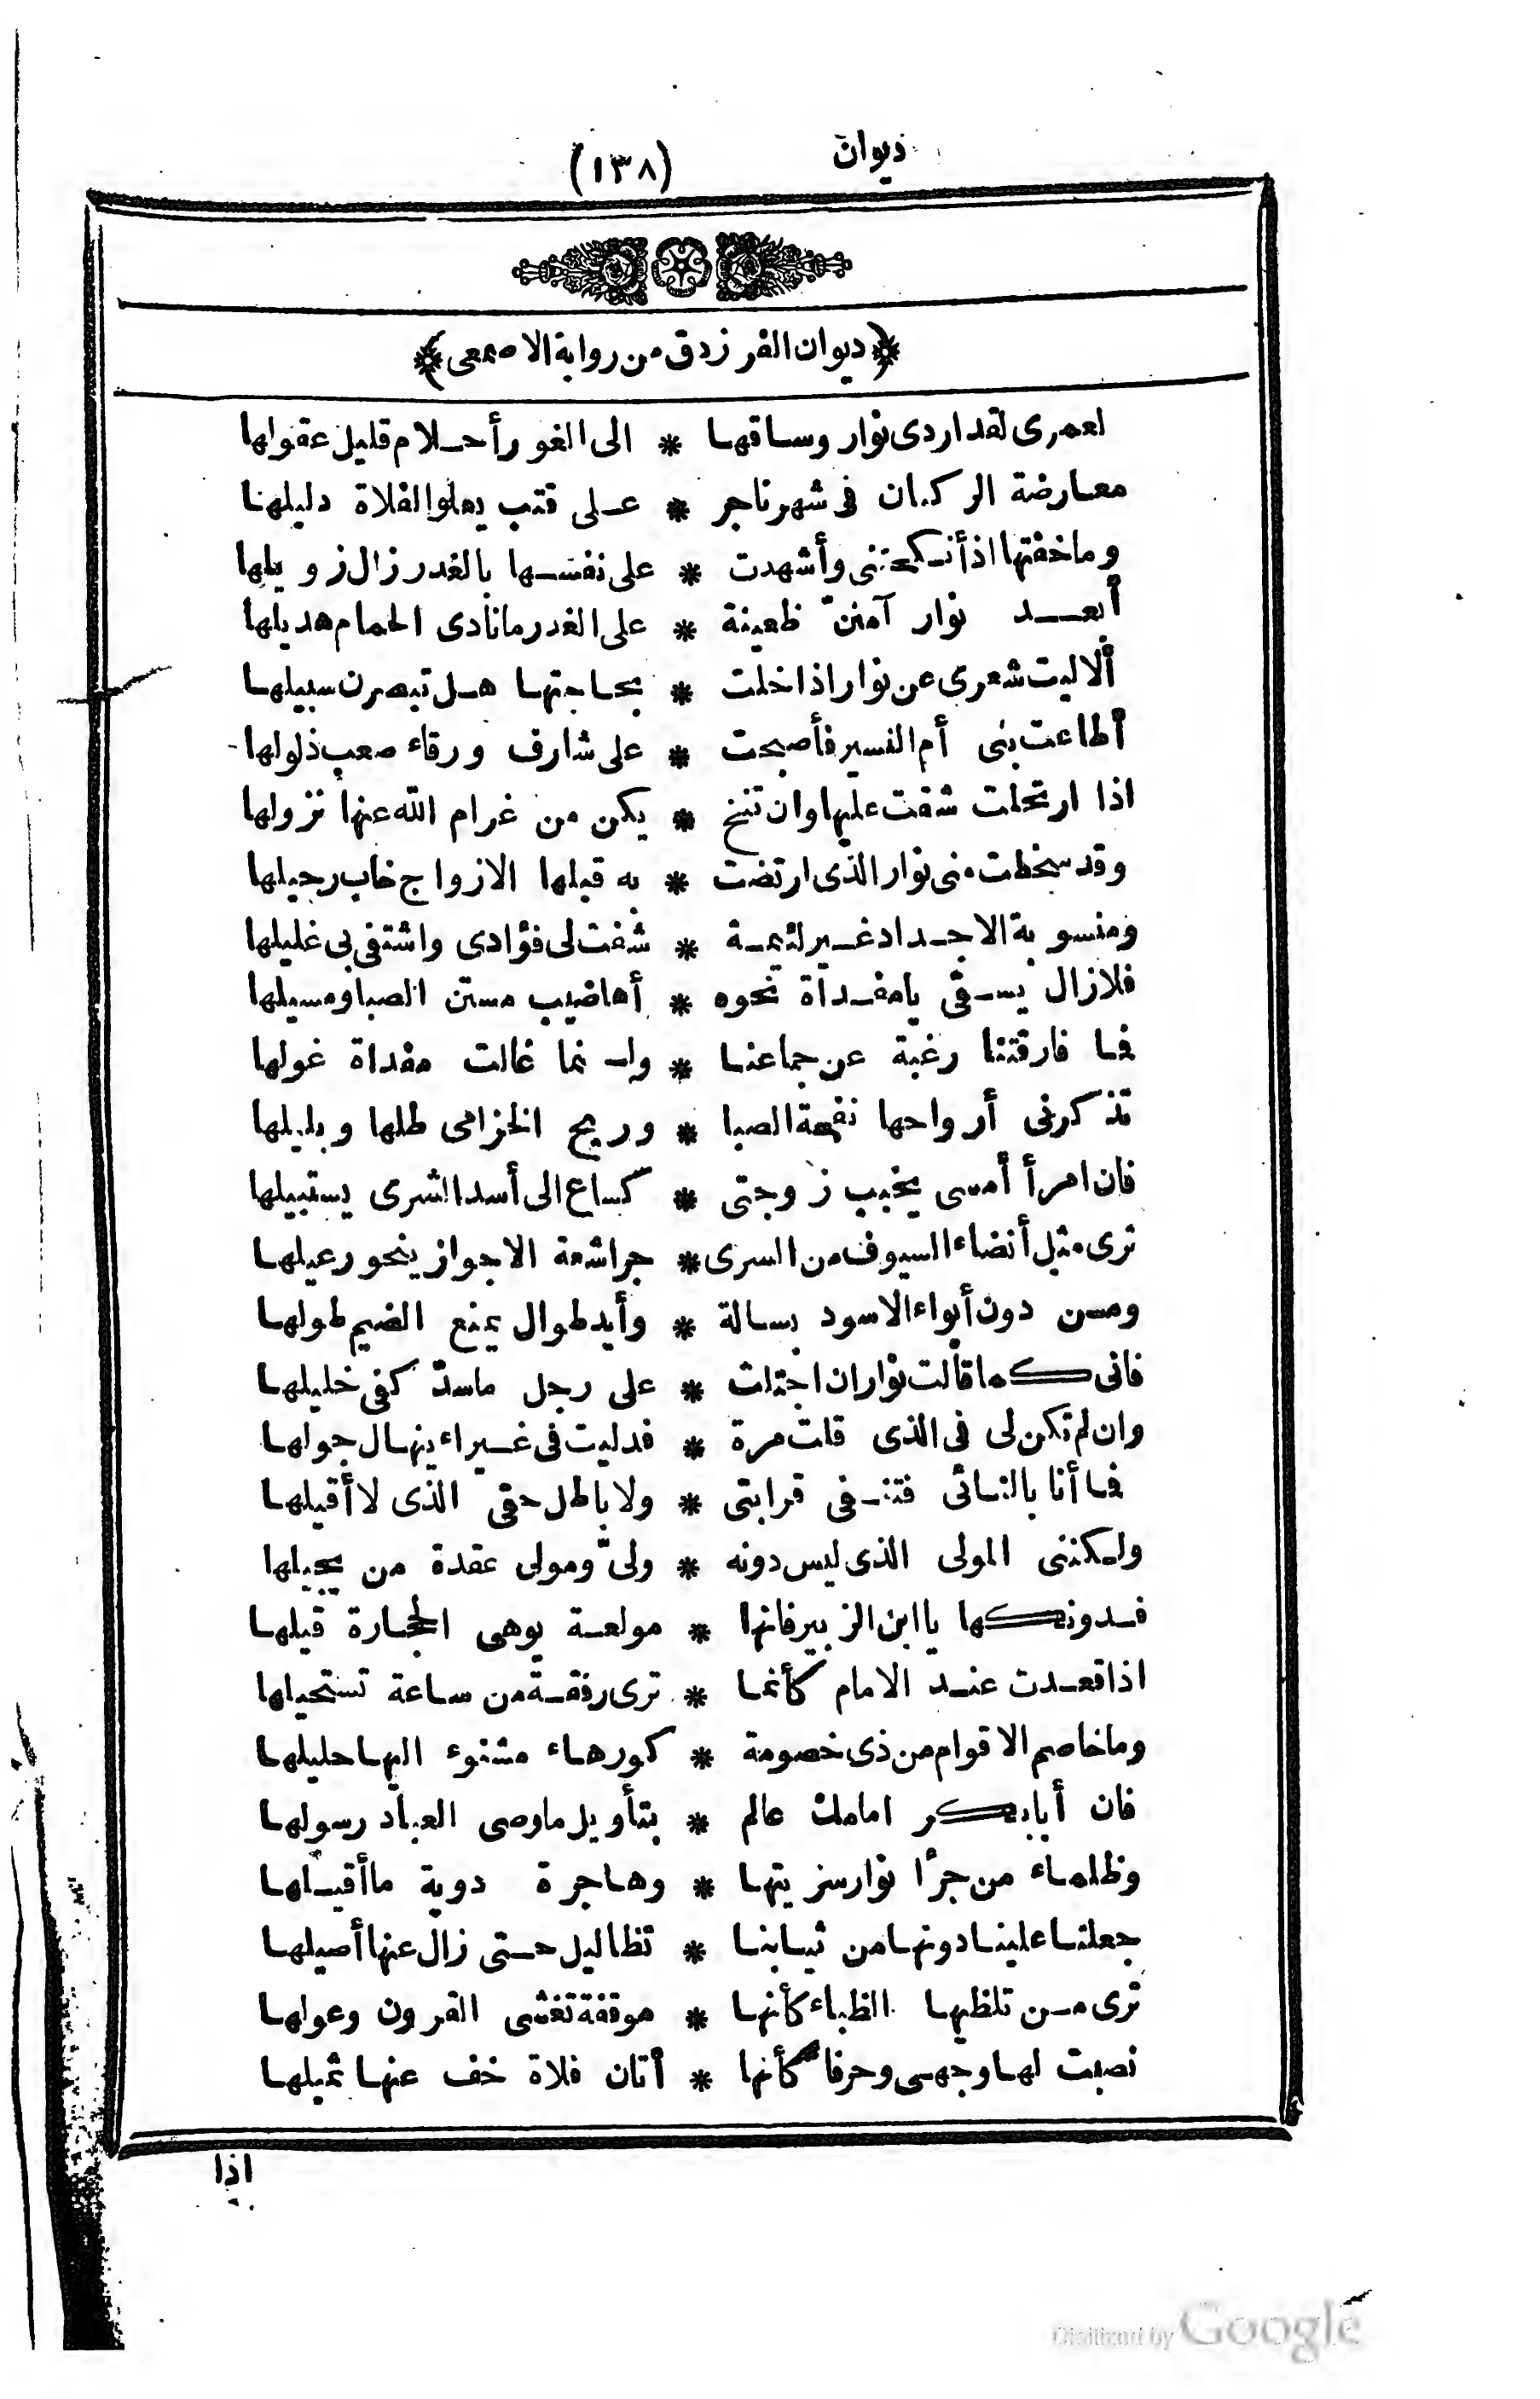 ديوان (١٣٨)
﴿ديوان الفرزدق من رواية الاصمعى﴾
لعمرى لقد اردى نوار وساقها * الى الغور أحلام قليل عقولها
معارضة الركبان فى شهر ناجر * على قتب يعلو الفلاة دليلها
وما خفتها اذ أنكحتنى وأشهدت * على نفسها بالغدر زال زويلها
أبعد نوار آمنن ظعينة * على الغدر ما نادى الحمام هديلها
ألا ليت شعرى عن نوار اذا خلت * بحاجتها هل تبصرن سبيلها
أطاعت بنى أم النسير فأصبحت * على شارف ورقاء صعب ذلولها
اذا ارتحلت شقت عليها وان تنخ * يكن من غرام الله عنها نزولها
وقد سخطت منى نوار الذى ارتضت * به قبلها الازواج خاب رحيلها
ومنسوبة الاجداد غير لئيمة * شفت لى فؤادى واشتفى بى غليلها
فلا زال يسقى يا مفداة نحوه * أهاضيب مستن الصبا ومسيلها
فما فارقتنا رغبة عن جماعنا * ولـنما غالت مفداة غولها
تذكرنى أرواحها نفحة الصبا * وريح الخزامى طلها وبليلها
فان امرأ أمسى يخبب زوجتى * كساع الى أسد الشرى يستبيلها
ترى مثل أنضاء السيوف من السرى * جراشعة الاجواز ينحو رعيلها
ومن دون أبواء الاسود بسالة * وأيد طوال يمنع الضيم طولها
فانى كما قالت نوار ان اجتلت * على رجل ما سد كفى خليلها
وان لم تكن لى فى الذى قلت مرة * فدليت فى غبراء ينهال جولها
فما أنا بالنائى فتنفى قرابتى * ولا باطل حقى الذى لا أقيلها
ولكننى المولى الذى ليس دونه * ولىّ ومولى عقدة من يجيلها
فدونكها يا ابن الزبير فانها * مولعة يوهى الحجارة قيلها
اذا قعدت عند الامام كأنما * ترى رفقة من ساعة تستحيلها
وما خاصم الاقوام من ذى خصومة * كورهاء مشنوء اليها حليلها
فان أبا بكر امامك عالم * بتأويل ما وصى العباد رسولها
وظلماء من جرّا نوار سريتها * وهاجرة دوية ما أقيلها
جعلنا علينا دونها من ثيابنا * تظاليل حتى زال عنها أصيلها
ترى من تلظيها الظباء كأنها * موقفة تغشى القرون وعولها
نصبت لها وجهى وحرفا كأنها * أتان فلاة خف عنها ثميلها
اذا
Digitized by Google